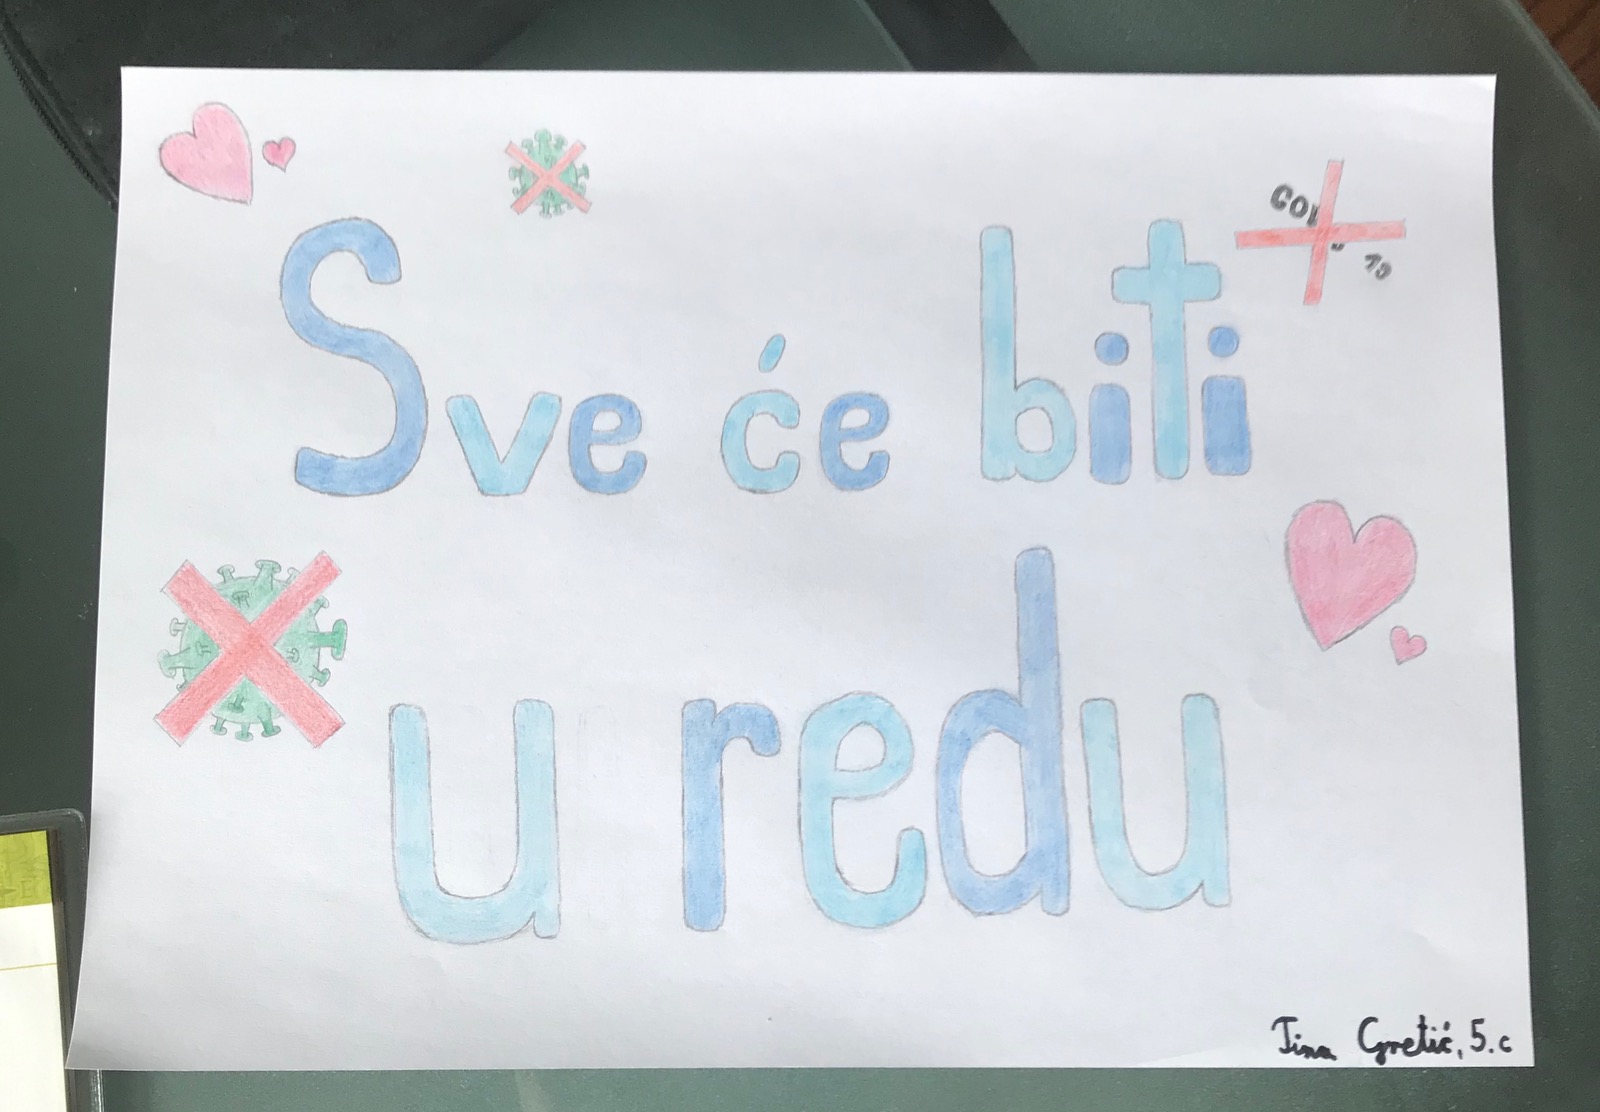 Sve će biti
u redu
Tina Gretić, 5.c